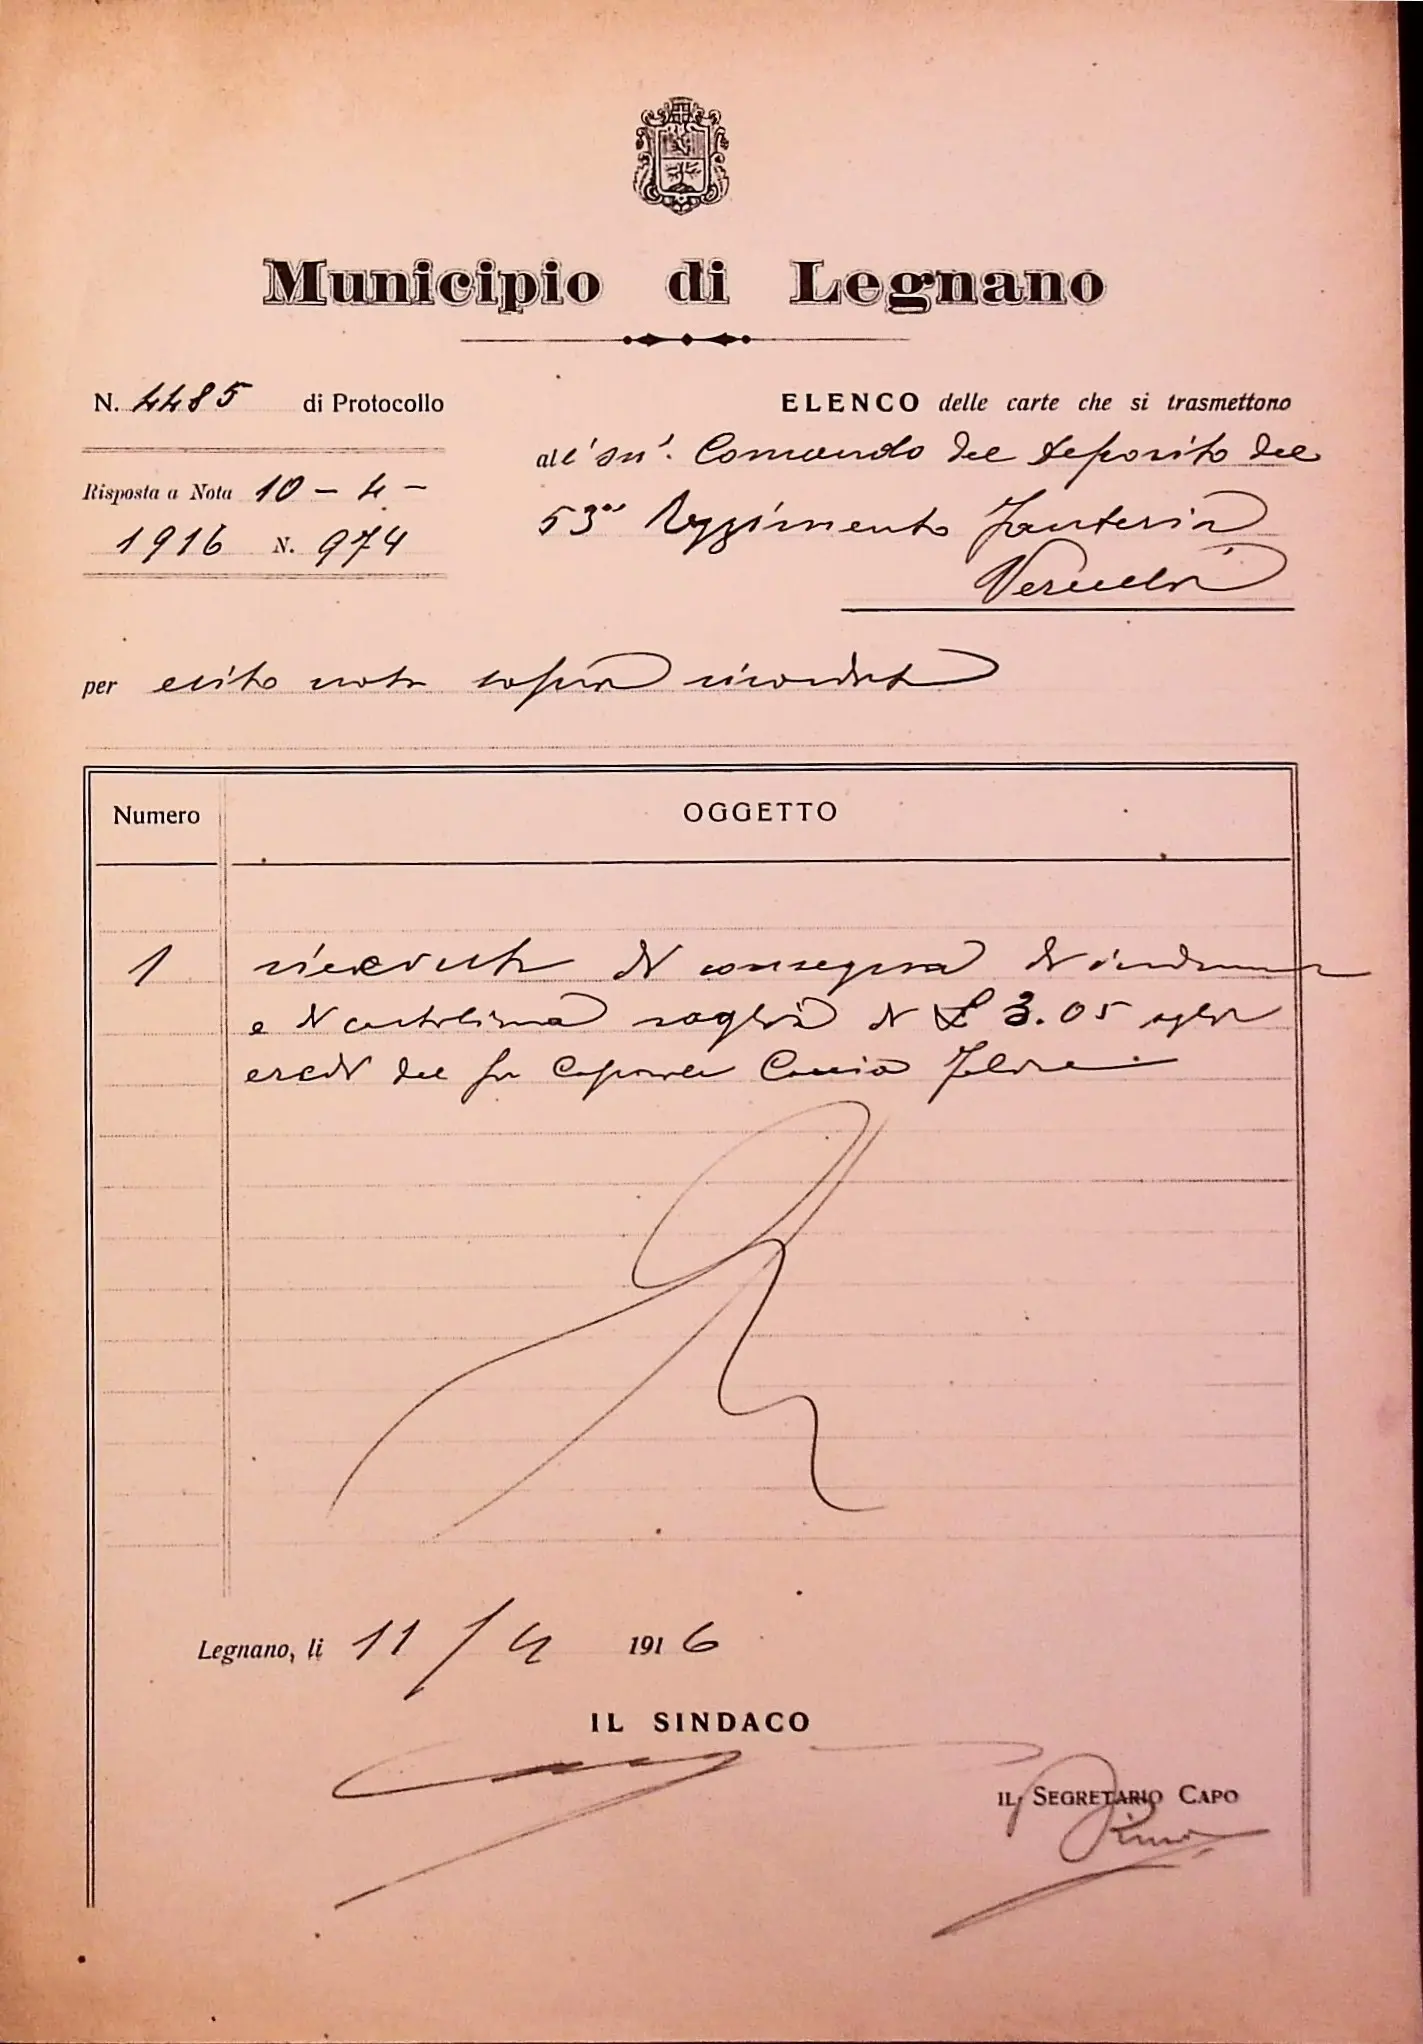 Municipio di Legnano
N. 4485 di Protocollo
ELENCO delle carte che si trasmettono
all' On. Comando del deposito del
Risposta a Nota 10 - 4 -
53° Reggimento Fanteria
1916 N. 974
Vercelli
per esito nota sopra ricordata
Numero OGGETTO
1 ricevuta di consegna di
e di cartolina vaglia di £ 3.05 agli
eredi del fu Caporale Felice
Legnano, li 11/4 1916
IL SINDACO
IL SEGRETARIO CAPO